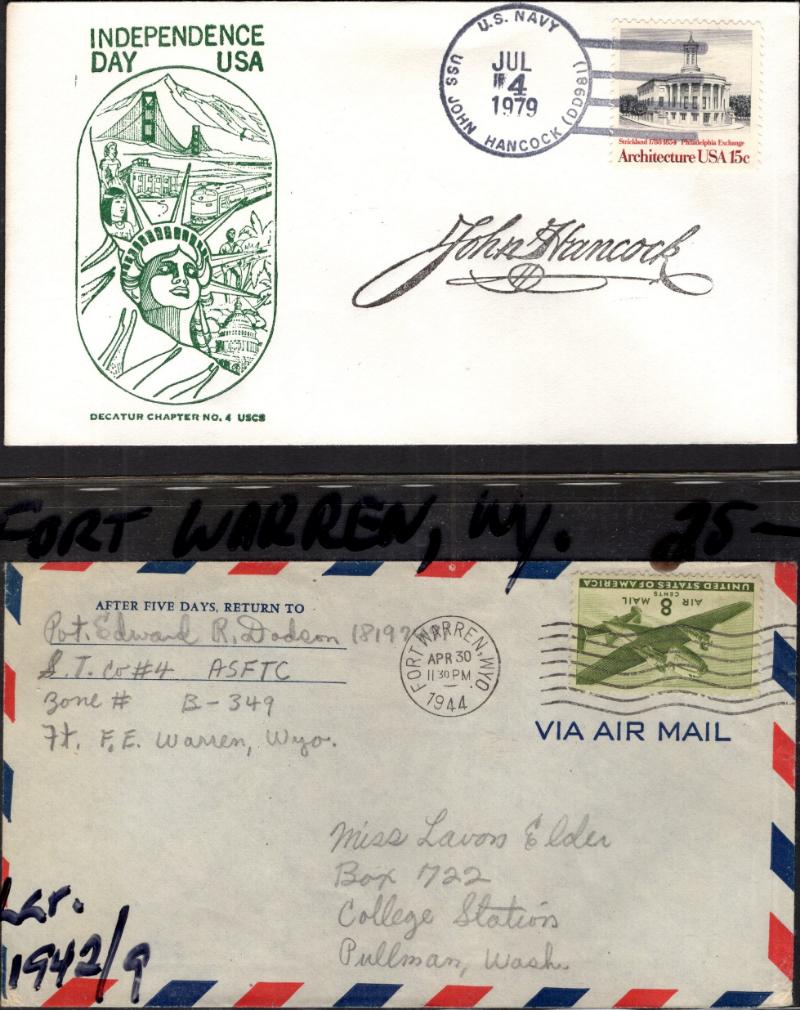 INDEPENDENCE
DAY USA
DECATUR CHAPTER NO. 4 USCS
U.S. NAVY
JUL
4
1979
USS JOHN HANCOCK (DD981)
Strickland 1788-1854 Philadelphia Exchange
Architecture USA 15c
John Hancock
FORT WARREN, WY. 25-
AFTER FIVE DAYS, RETURN TO
Pvt. Edward R. Dodson
S.T. Co #4 ASFTC
Zone # B-349
Ft. F.E. Warren, Wyo.
FORT WARREN, WYO
APR 30
11 30 PM
1944
UNITED STATES OF AMERICA
AIR MAIL
8 CENTS
VIA AIR MAIL
Miss Lavon Elder
Box 722
College Station
Pullman, Wash.
1942/9